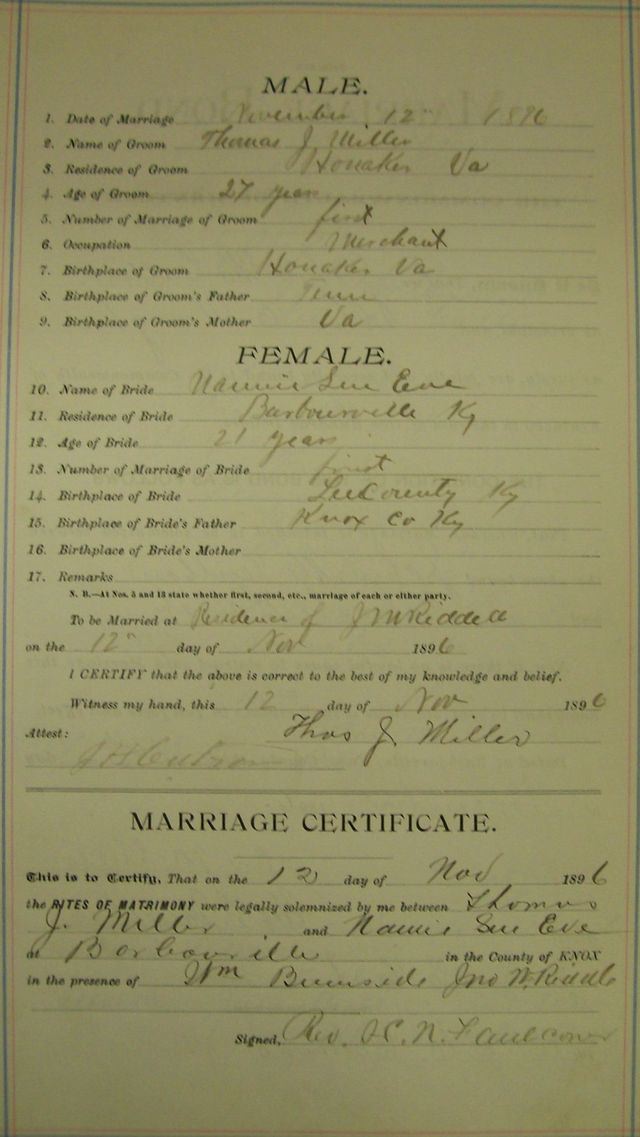 MALE.
1. Date of Marriage November 12" 1896
2. Name of Groom Thomas J Miller
3. Residence of Groom Honaker Va
4. Age of Groom 27 years
5. Number of Marriage of Groom first
6. Occupation Merchant
7. Birthplace of Groom Honaker Va
8. Birthplace of Groom's Father Tenn
9. Birthplace of Groom's Mother Va
FEMALE.
10. Name of Bride Nannie Sue Eve
11. Residence of Bride Barbourville Ky
12. Age of Bride 21 years
13. Number of Marriage of Bride first
14. Birthplace of Bride Lee County Ky
15. Birthplace of Bride's Father Knox Co Ky
16. Birthplace of Bride's Mother
17. Remarks
N. B.—At Nos. 5 and 13 state whether first, second, etc., marriage of each or either party.
To be Married at Residence of J M Riddell
on the 12" day of Nov 1896
I CERTIFY that the above is correct to the best of my knowledge and belief.
Witness my hand, this 12 day of Nov 1896
Attest: Thos J Miller
MARRIAGE CERTIFICATE.
This is to Certify, That on the 12 day of Nov 1896
the RITES OF MATRIMONY were legally solemnized by me between Thomas
J. Miller and Nannie Sue Eve
at Barbourville in the County of KNOX
in the presence of Wm Burnside Jno W. Riddle
Signed, Rev. H. N. Faulconer